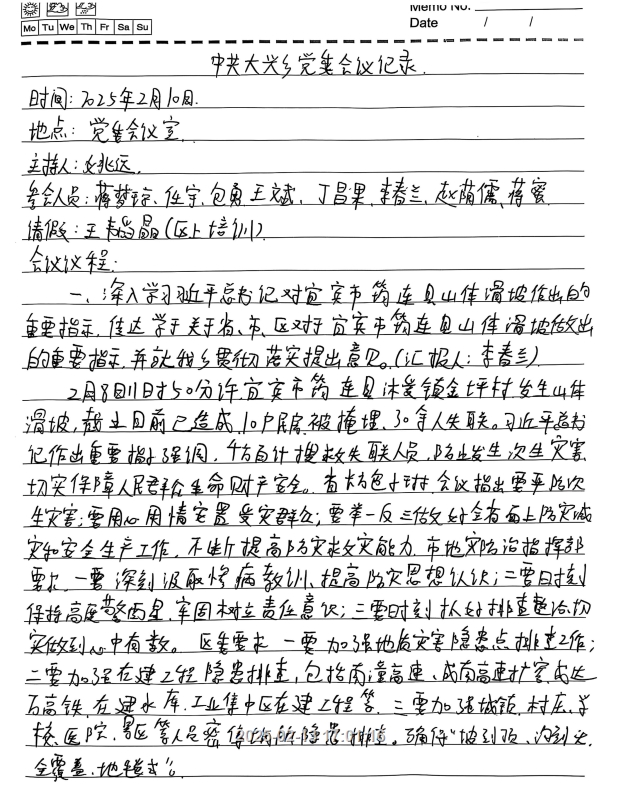 Memo No.
Mo Tu We Th Fr Sa Su
Date / /
中共大兴乡党委会议记录.
时间:2025年2月10日.
地点:党委会议室.
主持人:
参会人员:蒋梦琼、任宇、包勇、王斌、丁昌果、李春兰、赵荫儒、蒋蜜
请假:王晶(区上培训)
会议议程:
一、深入学习习近平总书记对宜宾市筠连县山体滑坡作出的
重要指示,传达学习关于省、市、区对于宜宾市筠连县山体滑坡做出
的重要指示,并就我乡贯彻落实提出意见。(汇报人:李春兰)
2月8日11时50分许宜宾市筠连县沐爱镇金坪村发生山体
滑坡,截止目前已造成10户民房被掩埋,30余人失联。习近平总书
记作出重要指示强调,千方百计搜救失联人员,防止发生次生灾害,
切实保障人民群众生命财产安全。省 会议指出要严防次
生灾害;要用心用情安置受灾群众;要举一反三做好全省面上防灾减
灾和安全生产工作,不断提高防灾救灾能力.市地灾防治指挥部
要求,一要深刻汲取惨痛教训、提高防灾思想认识;二要时刻
保持高度警惕,牢固树立责任意识;三要时刻抓好排查整治,切
实做到心中有数。区委要求一要加强地质灾害隐患点排查工作;
二要加强在建工程隐患排查,包括内潼高速、成南高速扩容、成达
万高铁、在建水库、工业集中区在建工程等.三要加强城镇、村庄、学
校、医院、景区等人员密 场所隐患排查。确保“坡到顶、沟到头、
全覆盖、地毯式”。